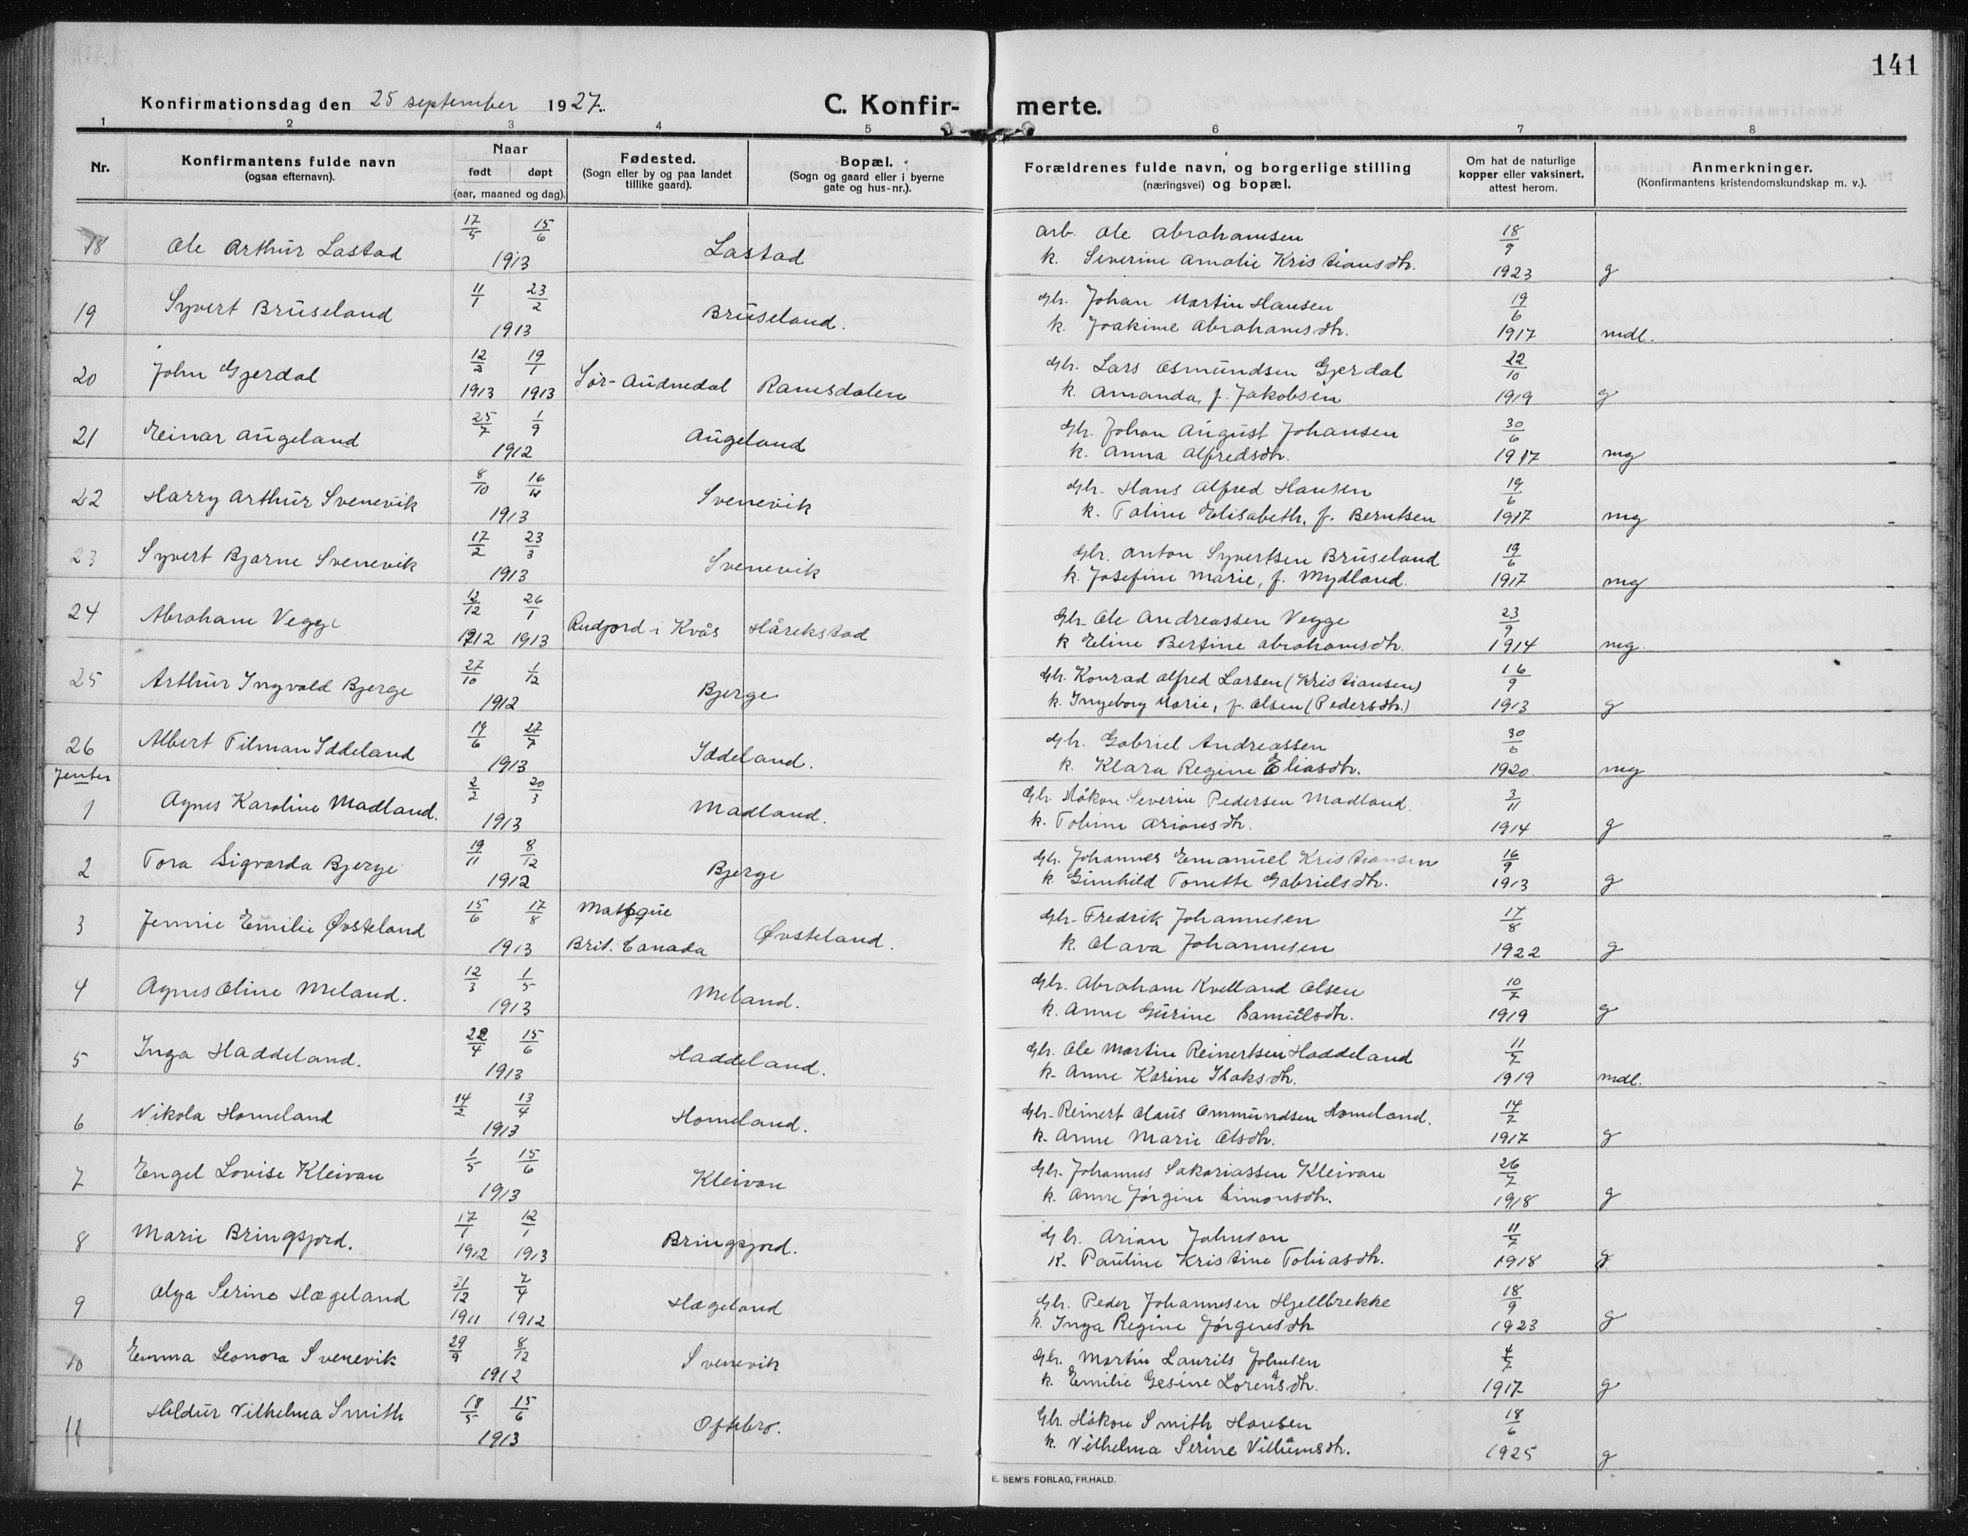 141
Konfirmationsdag den 25 september 1927.
C. Konfir- merte.
1 2 3 4 5 6 7 8
Nr.
Konfirmantens fulde navn
(ogsaa efternavn).
Naar
født døpt
(aar, maaned og dag).
Fødested.
(Sogn eller by og paa landet
tillike gaard).
Bopæl.
(Sogn og gaard eller i byerne
gate og hus-nr.).
Forældrenes fulde navn, og borgerlige stilling
(næringsvei) og bopæl.
Om hat de naturlige
kopper eller vaksinert,
attest herom.
Anmerkninger.
(Konfirmantens kristendomskundskap m. v.).
17/5 15/6 arb. Ole Abrahamsen 18/9
18 Ole Arthur Lastad 1913 Lastad k. Severine Amalie Kristiansdtr. 1923 g
11/1 23/2 Gbr. Johan Martin Hansen 19/6
19 Syvert Brüseland 1913 Brüseland. k. Joakime Abrahamsdtr. 1917 mdl.
19/1 Gbr. Lars Osmundsen Gjerdal 22/10
20 John Gjerdal 1913 1913 Sør-Audnedal Ramsdalen k. Amanda, f. Jakobsen 1919 g
25/7 1/9 Gbr. Johan August Johansen 30/6
21 Einar Augeland 1912 Augeland k. Anna Alfredsdtr. 1917 mg
8/10 Gbr. Hans Alfred Hansen 19/6
22 Harry Arthur Svenevik 1913 Svenevik k. Toline Elisabeth, f. Berntsen 1917 mg
17/2 23/3 Gbr. Anton Syvertsen Brüseland 19/6
23 Syvert Bjarne Svenevik 1913 Svenevik k. Josefine Marie, f. Mydland. 1917 mg
12/12 26/1 Gbr. Ole Andreassen Vegge 23/9
24 Abraham Vegge 1912 1913 Rudjord i Kvås Hårikstad k Eline Bertine Abrahamsdtr. 1914 mg.
27/10 1/12 Gbr. Konrad Alfred Larsen (Kristiansen) 16/9
25 Arthur Ingvald Bjerge 1912 Bjerge k. Ingeborg Marie, f. Olsen (Pedersdtr.) 1913 g
19/6 27/7 Gbr. Gabriel Andreassen 30/6
26 Albert Tilman Iddeland 1913 Iddeland. k. Klara Regine Eliasdtr. 1920 mg
Jenter
2/2 20/3 Gbr. Håkon Severin Pedersen Madland. 3/11
1 Agnes Karoline Madland. 1913 Madland. k. Tobine Ariansdtr. 1914 g
19/11 8/12 Gbr. Johannes Emanuel Kristiansen 16/9
2 Tora Sigvarda Bjerge 1912 Bjerge k. Gunhild Tonette Gabrielsdtr. 1913 g
15/6 17/8 Gbr. Fredrik Johannesen 17/8
3 Jennie Emilie Øvsteland 1913 Brit. Canada Øvsteland. k. Olava Johannesen 1922 g
12/3 1/5 Gbr. Abraham Kvelland Olsen 10/7
4 Agnes Oline Meland. 1913 Meland. k. Anne Gurine Samuelsdtr. 1919 g
22/4 15/6 Gbr. Ole Martin Reinertsen Haddeland 11/7
5 Inga Haddeland. 1913 Haddeland. k. Anne Karine Isaksdtr. 1919 mdl.
14/2 13/4 Gbr. Reinert Olaus Ommundsen Homeland. 14/7
6 Nikola Homeland 1913 Homeland. k. Anne Marie Olsdtr. 1917 g
1/5 15/6 Gbr. Johannes Sakariassen Kleivan 26/7
7 Engel Lovise Kleivan 1913 Kleivan k. Anne Jørgine Simonsdtr. 1918 g
17/1 12/1 Gbr. Arian Johnson 11/7
8 Marie Bringsjord. 1912 1913 Bringsjord. K. Pauline Kristine Tobiasdtr. 1918 g
31/12 7/4 Gbr. Peder Johannesen Hjellbrekke 18/9
9 Olga Serine Hægeland 1911 1912 Hægeland k. Inga Regine Jørgensdtr 1923 g
29/9 8/12 Gbr. Martin Laurits Johnsen 4/7
10 Emma Leonora Svenevik 1912 Svenevik k. Emilie Gesine Lorentsdtr. 1917 g
18/5 15/6 Gbr. Håkon Smith Hansen 18/6
11 Hildur Vilhelma Smith 1913 Oftebro. k. Vilhelma Serine Villumsdtr. 1925 g
E. SEM'S FORLAG, FR.HALD.